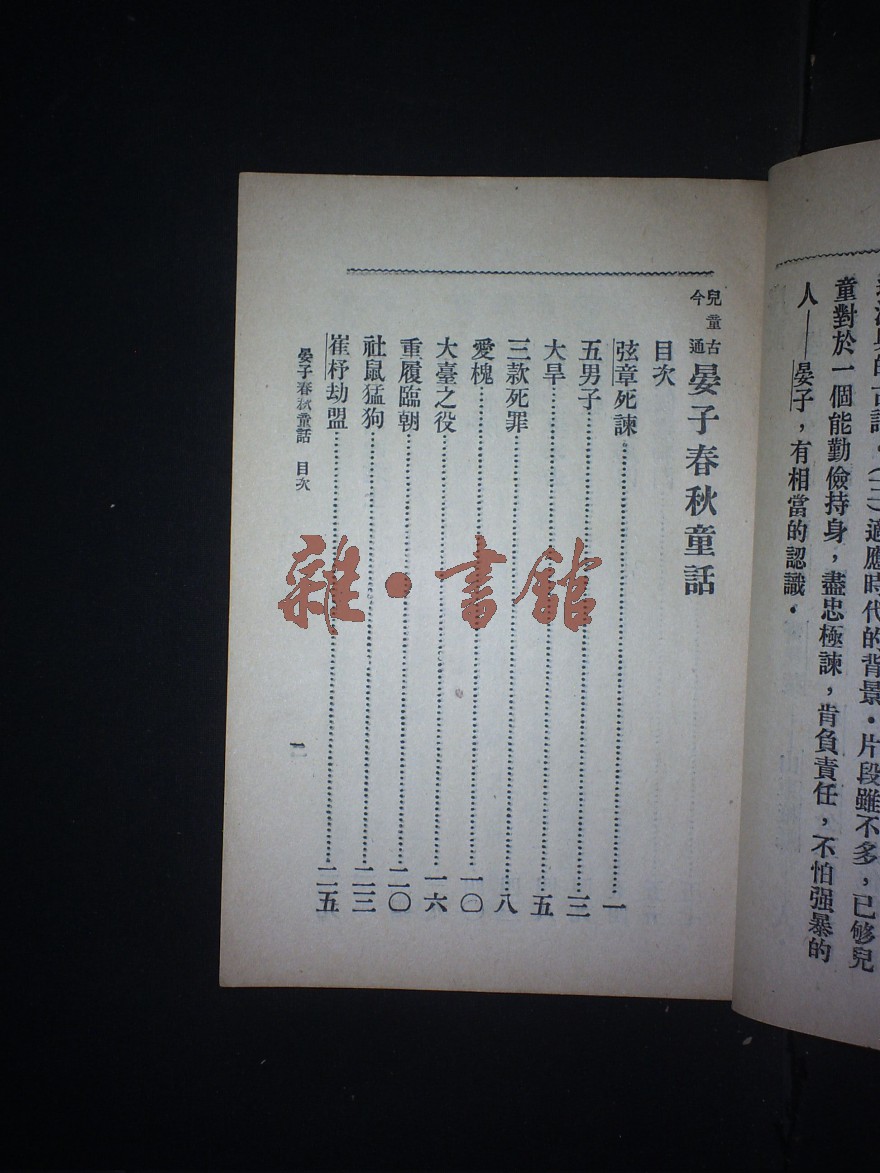 適應時代的背景．片段雖不多，已够兒
童對於一個能勤儉持身，盡忠極諫，肯負責任，不怕强暴的
人——晏子，有相當的認識．
兒童古今通 晏子春秋童話
目次
弦章死諫……一
五男子……三
大旱……五
三款死罪……八
愛槐……一〇
大臺之役……一六
重履臨朝……二〇
社鼠猛狗……二三
崔杼劫盟……二五
晏子春秋童話 目次
雜・書館